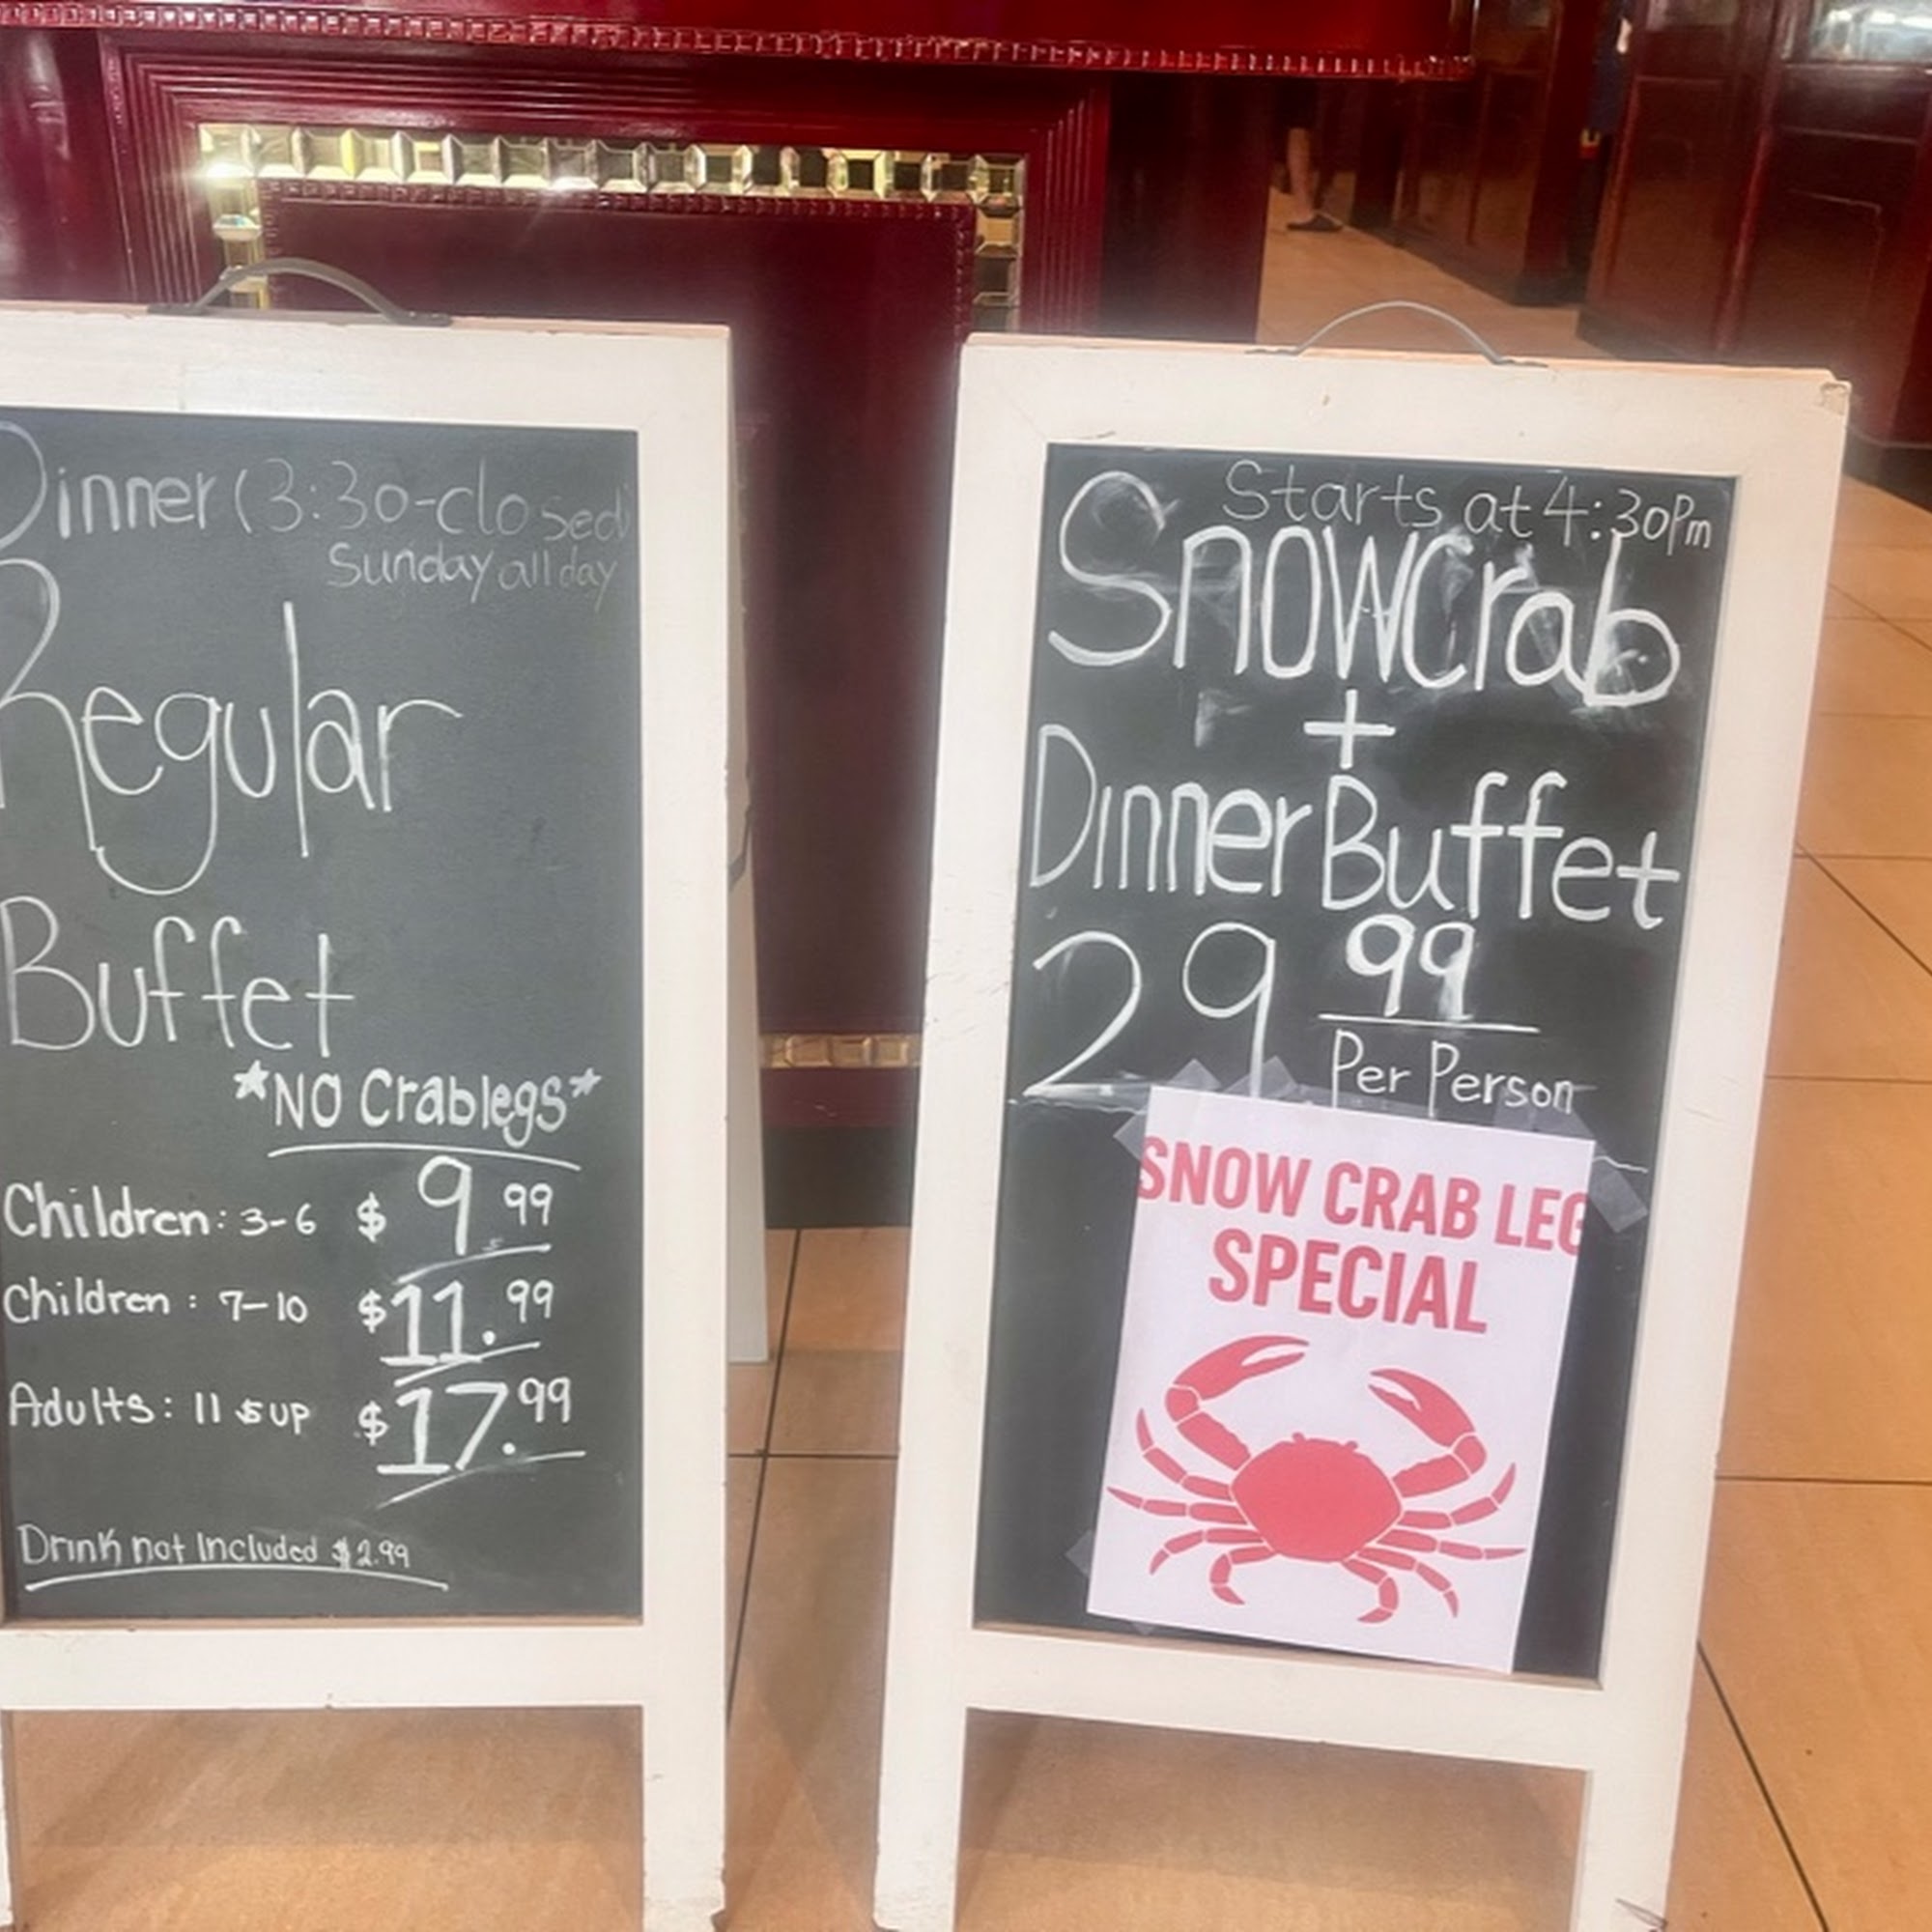 Dinner (3:30-closed)
Sunday all day
Regular
Buffet
*NO Crablegs*
Children: 3-6 $9.99
Children: 7-10 $11.99
Adults: 11 & up $17.99
Drink not Included $2.99
Starts at 4:30Pm
Snowcrab
+
Dinner Buffet
29 99
Per Person
SNOW CRAB LEG
SPECIAL